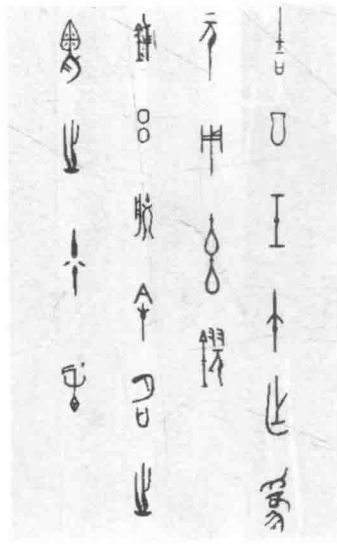 吉日壬午乍為
元用玄鏐
鋪呂朕余名之
胃之少虡